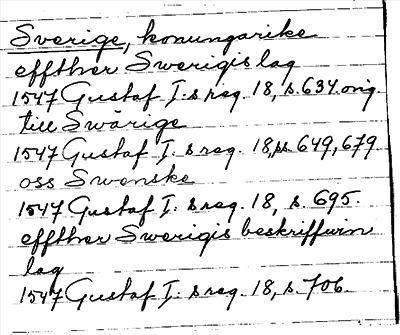 Sverige, konungarike
effther Swerigis lag
1547 Gustaf I:s reg. 18, s. 634. orig.
till Swärige
1547 Gustaf I:s reg. 18, ss. 649, 679
oss Swenske
1547 Gustaf I:s reg. 18, s. 695.
effther Swerigis beskriffwin
lag
1547 Gustaf I:s reg. 18, s. 706.